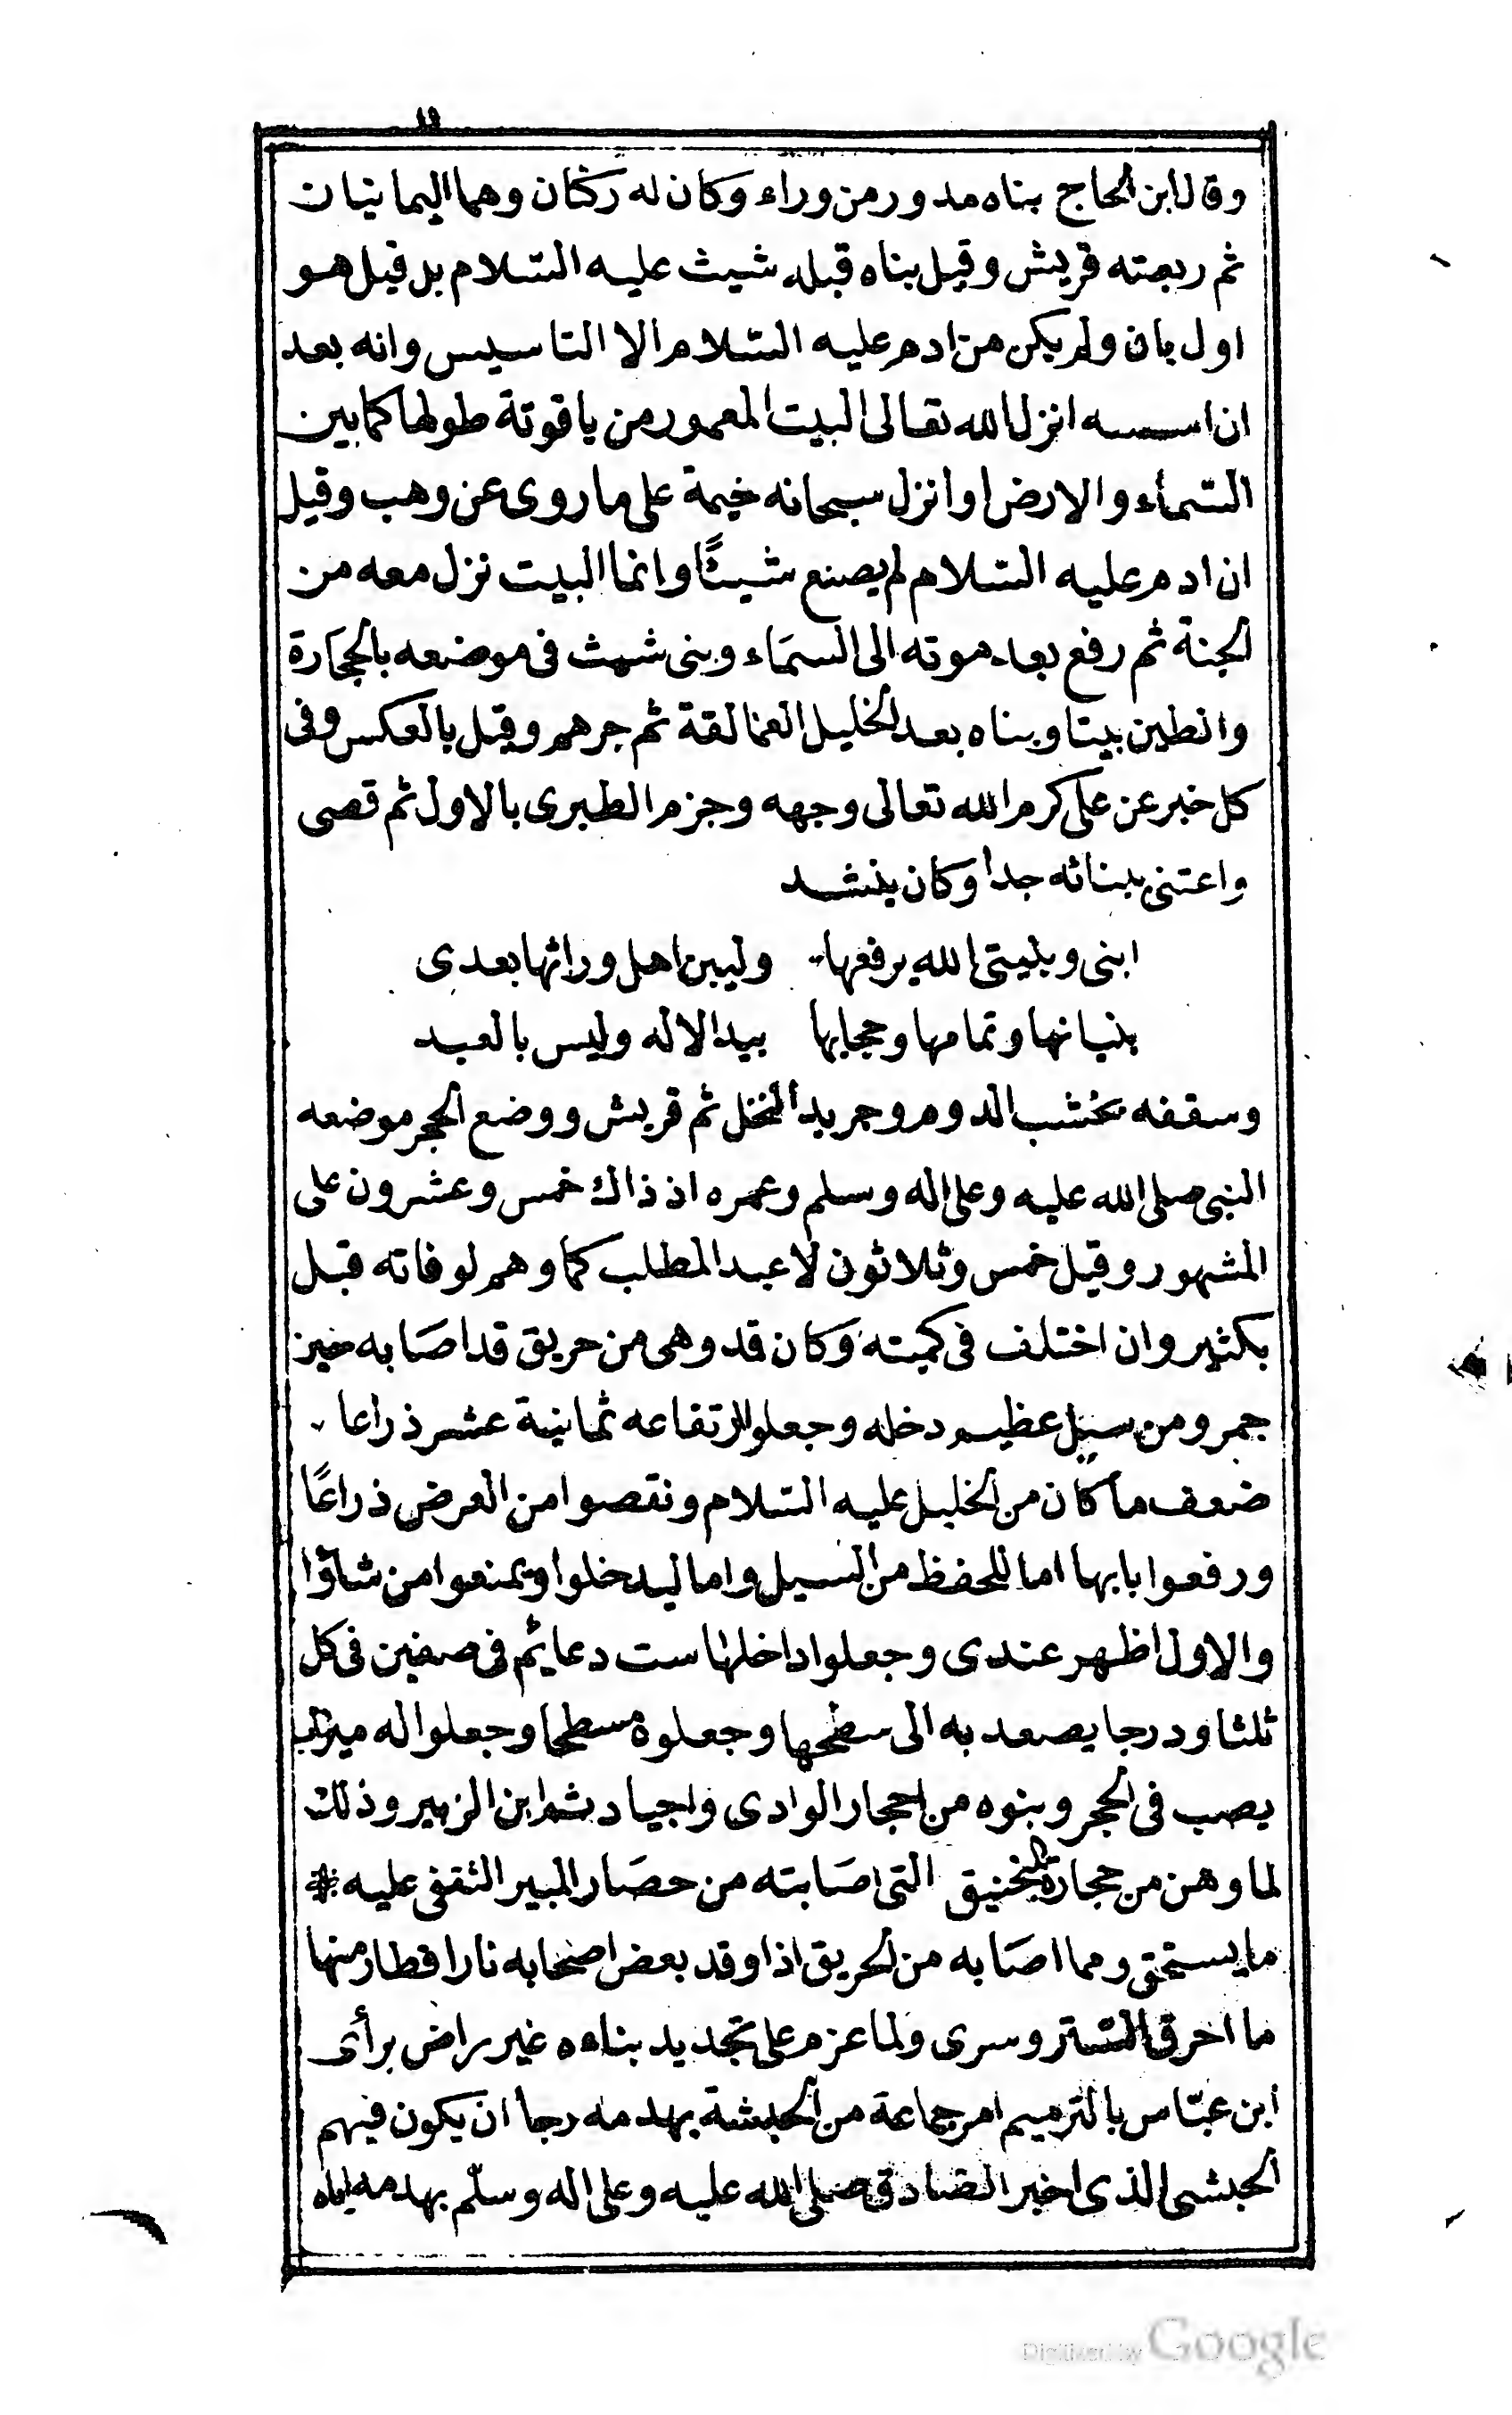 وقال ابن الحاج بناه مدور من وراء وكان له ركنان وهما اليمانيان
ثم ربعته قريش وقيل بناه قبله شيث عليه السلام بل قيل هو
اول بان ولم يكن من ادم عليه السلام الا التاسيس وانه بعد
ان اسسه انزل الله تعالى البيت المعمور من ياقوتة طولها كما بين
السماء والارض او انزل سبحانه خيمة على ما روى عن وهب وقيل
ان ادم عليه السلام لم يصنع شيئًا وانما البيت نزل معه من
الجنة ثم رفع بعد موته الى السماء وبنى شيث فى موضعه بالحجارة
والطين بيتا وبناه بعد الخليل العمالقة ثم جرهم وقيل بالعكس وفى
كل خبر عن على كرم الله تعالى وجهه وجزم الطبرى بالاول ثم قصى
واعتنى ببنائه جدا وكان ينشد
ابنى ويبنى الله يرفعها وليبن اهل وراثها بعدى
بنيانها وتمامها وحجابها بيد الاله وليس بالعبد
وسقفه بخشب الدوم وجريد النخل ثم قريش ووضع الحجر موضعه
النبى صلى الله عليه وعلى اله وسلم وعمره اذ ذاك خمس وعشرون على
المشهور وقيل خمس وثلاثون لا عبد المطلب كما وهم لوفاته قبل
بكثير وان اختلف فى كميته وكان قد وهى من حريق قد اصابه حين
جمر ومن سيل عظيم دخله وجعلوا ارتفاعه ثمانية عشر ذراعا
ضعف ما كان من الخليل عليه السلام ونقصوا من العرض ذراعًا
ورفعوا بابها اما للحفظ من السيل واما ليدخلوا ويمنعوا من شاؤا
والاول اظهر عندى وجعلوا داخلها ست دعايم فى صفين فى كل
ثلثا ودرجا يصعد به الى سطحها وجعلوه مسطحا وجعلوا له ميزاب
يصب فى الحجر وبنوه من احجار الوادى واجياد ثم ابن الزبير وذلك
لما وهن من حجارة المنجنيق التى اصابته من حصار المبير الثقفى عليه *
ما يستحق ومما اصابه من الحريق اذ اوقد بعض اصحابه نارا فطار منها
ما احرق الستر وسرى ولما عزم على تجديد بناءه غير راض برأى
ابن عبّاس بالترميم امر جماعة من الحبشة بهدمه رجا ان يكون فيهم
الحبشى الذى اخبر الصادق صلى الله عليه وعلى اله وسلّم بهدمه اياه
Digitized by Google